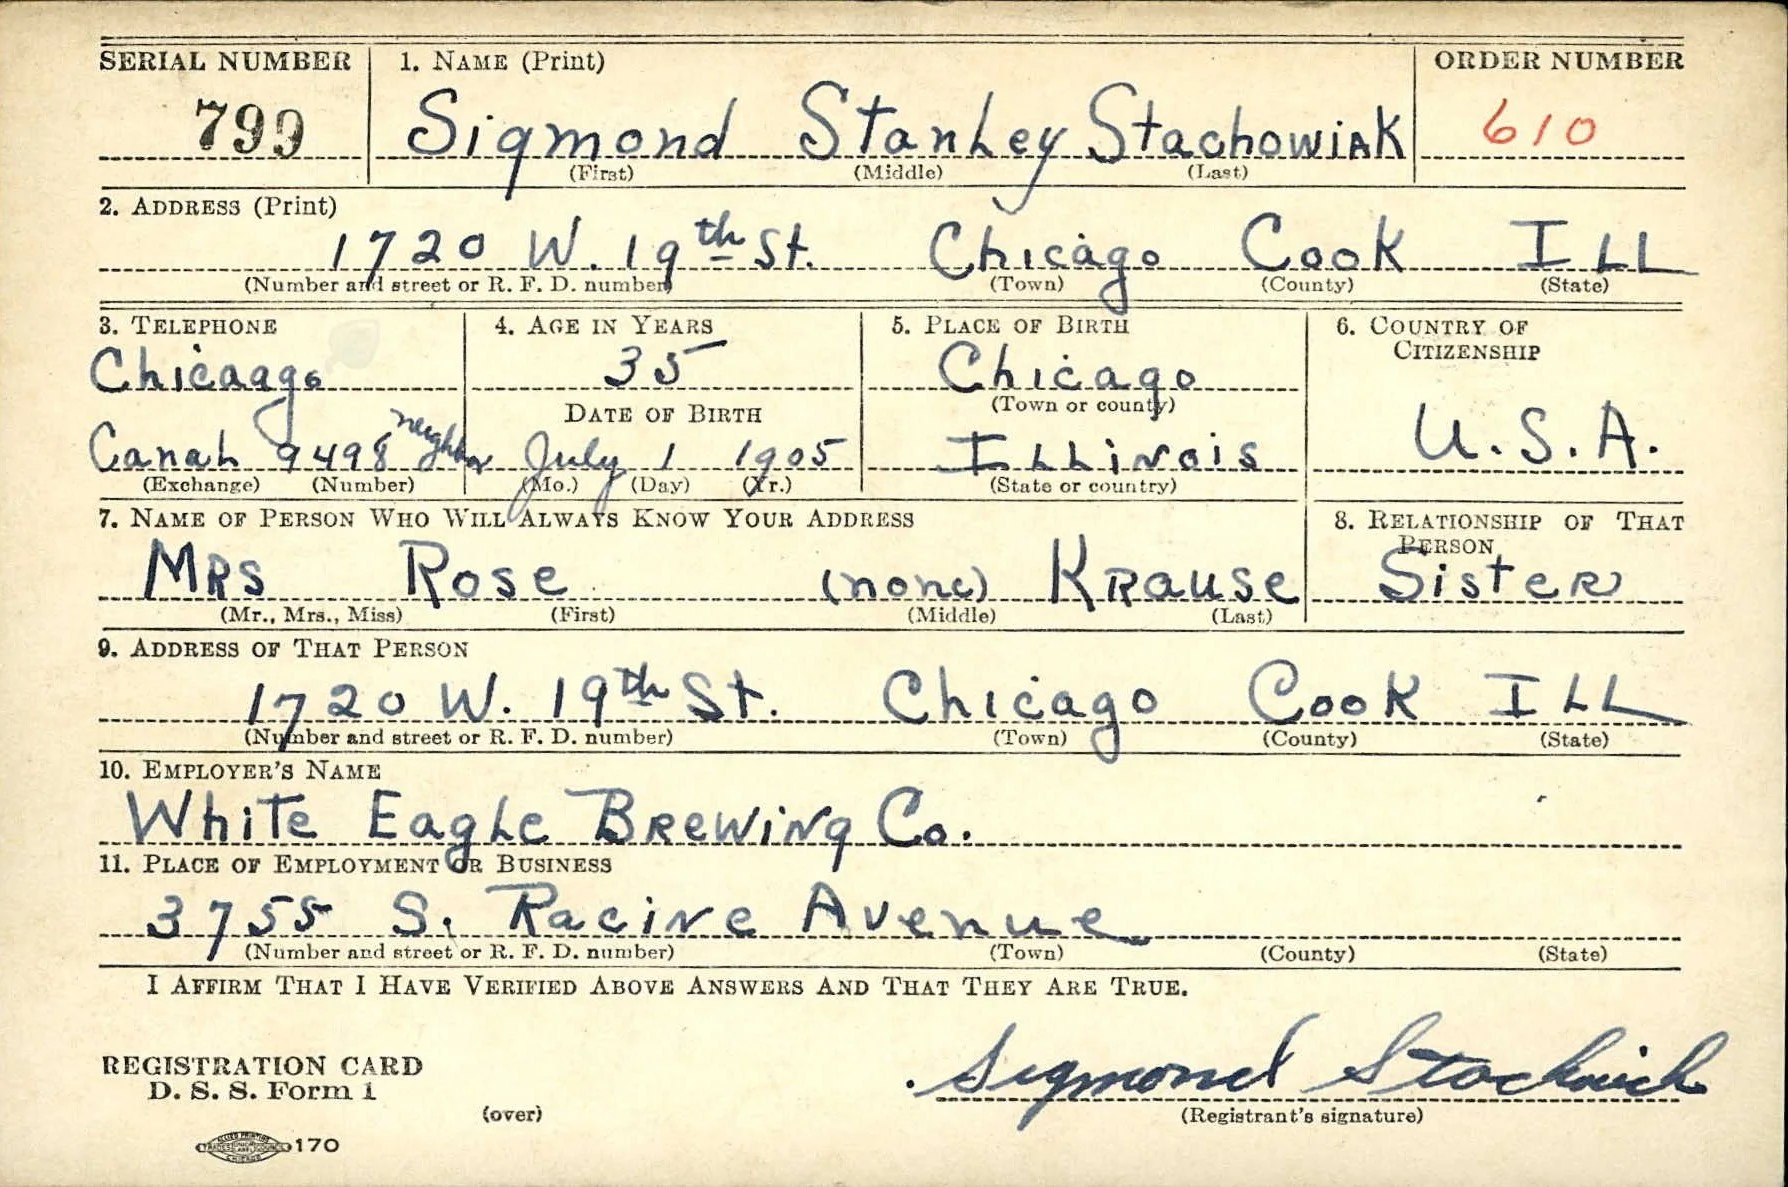 SERIAL NUMBER 1. NAME (Print) ORDER NUMBER
799 Sigmond Stanley Stachowiak 610
(First) (Middle) (Last)
2. ADDRESS (Print)
1720 W. 19th St. Chicago Cook ILL
(Number and street or R. F. D. number) (Town) (County) (State)
3. TELEPHONE 4. AGE IN YEARS 5. PLACE OF BIRTH 6. COUNTRY OF
CITIZENSHIP
Chicaago 35 Chicago
DATE OF BIRTH (Town or county)
Canal 9498 neighbor July 1 1905 Illinois U.S.A.
(Exchange) (Number) (Mo.) (Day) (Yr.) (State or country)
7. NAME OF PERSON WHO WILL ALWAYS KNOW YOUR ADDRESS 8. RELATIONSHIP OF THAT
PERSON
Mrs Rose (none) Krause Sister
(Mr., Mrs., Miss) (First) (Middle) (Last)
9. ADDRESS OF THAT PERSON
1720 W. 19th St. Chicago Cook ILL
(Number and street or R. F. D. number) (Town) (County) (State)
10. EMPLOYER'S NAME
White Eagle Brewing Co.
11. PLACE OF EMPLOYMENT OR BUSINESS
3755 S. Racine Avenue
(Number and street or R. F. D. number) (Town) (County) (State)
I AFFIRM THAT I HAVE VERIFIED ABOVE ANSWERS AND THAT THEY ARE TRUE.
REGISTRATION CARD
D. S. S. Form 1
Sigmond Stachowiak
(over) (Registrant's signature)
170